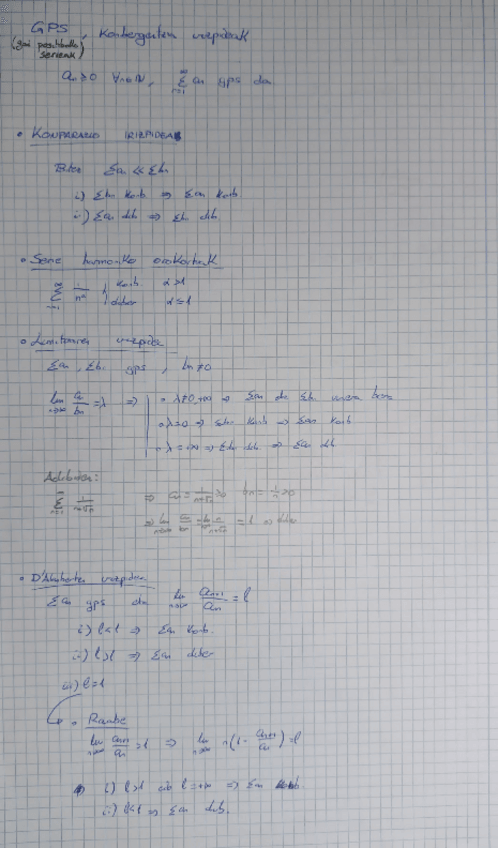 GPS, Konbergentzia irizpideak
(gai positiboko serieak)
aₙ ≥ 0 ∀n∈ℕ, ∑_{n=1}^{∞} aₙ gps da
• KONPARAZIO IRIZPIDEA
∑aₙ << ∑bₙ
i) ∑bₙ konb ⇒ ∑aₙ konb
ii) ∑aₙ dib ⇒ ∑bₙ dib
• Serie harmoniko orokortuak
∑_{n=1}^{∞} 1/n^α { konb. α>1
diber α≤1
• Limitearen irizpidea
∑aₙ, ∑bₙ gps, bₙ≠0
lim_{n→∞} aₙ/bₙ = λ ⇒ • λ≠0,+∞ ⇒ ∑aₙ da ∑bₙ
• λ=0 ⇒ ∑bₙ konb ⇒ ∑aₙ konb
• λ=+∞ ⇒ ∑bₙ dib ⇒ ∑aₙ dib
Adibidea:
∑_{n=1}^{∞} 1/(n+√n) ⇒ aₙ = 1/(n+√n) >0 bₙ = 1/n >0
⇒ lim_{n→∞} aₙ/bₙ = = 1 ⇒ diber
• D'Alemberten irizpidea
∑aₙ gps da lim_{n→∞} aₙ₊₁/aₙ = l
i) l<1 ⇒ ∑aₙ konb.
ii) l>1 ⇒ ∑aₙ diber
iii) l=1
• Raabe
lim_{n→∞} aₙ₊₁/aₙ = 1 ⇒ lim_{n→∞} n(1 - aₙ₊₁/aₙ) = l
i) l>1 edo l=+∞ ⇒ ∑aₙ konb.
ii) l<1 ⇒ ∑aₙ dib.